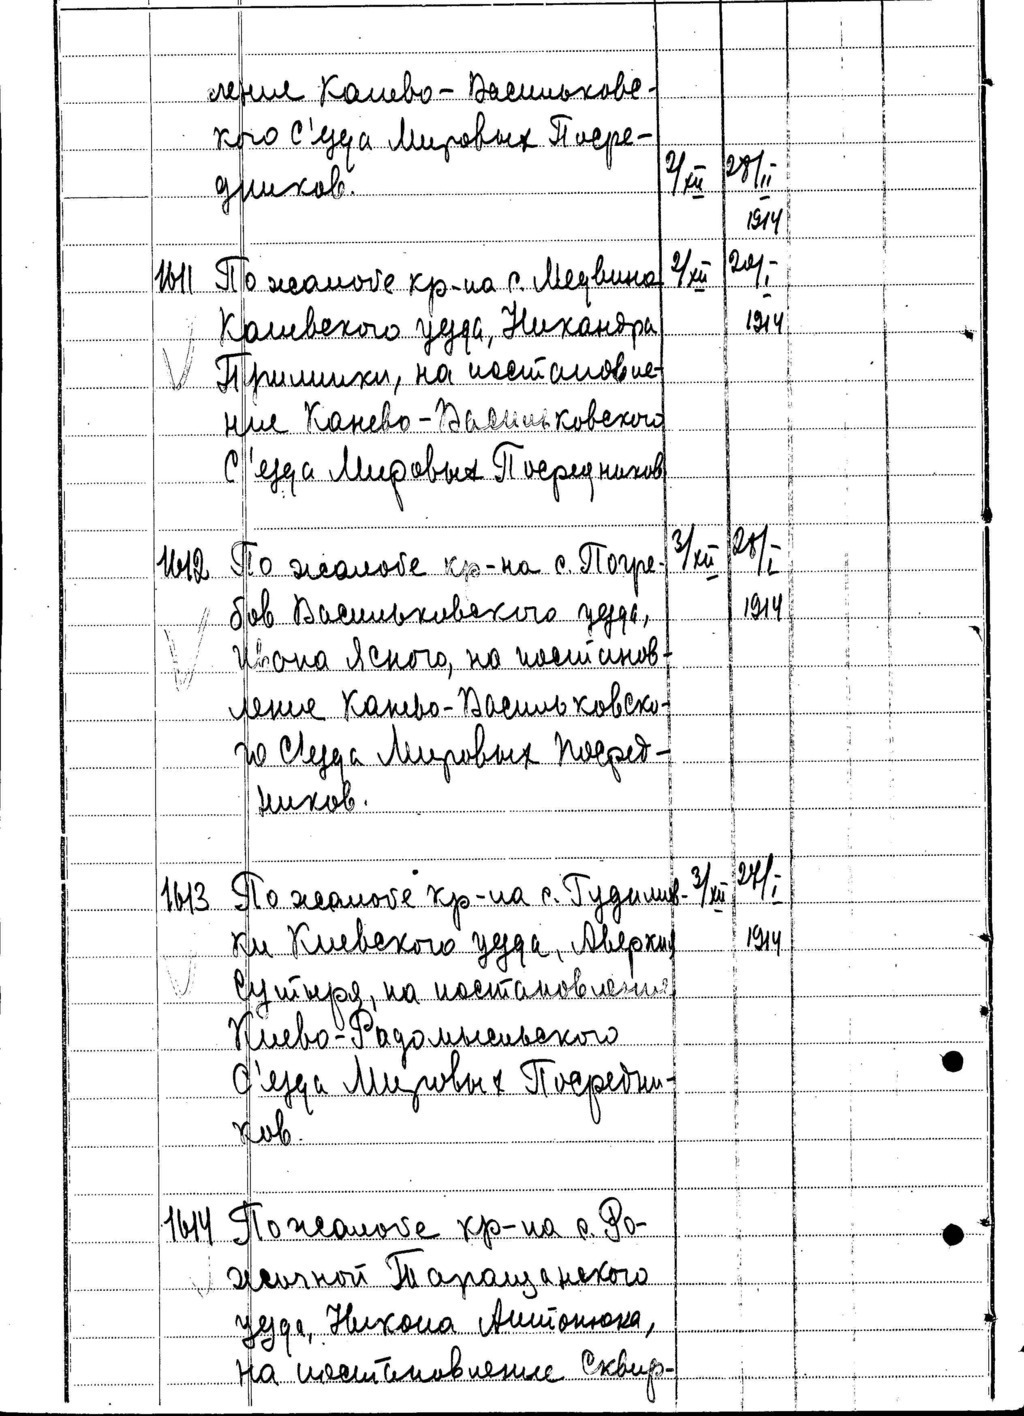 ление Канево-Васильковс-
кого С'езда Мировых Посре-
дников. 2/XII 28/II
1914
1611 По жалобе кр-на с. Медвина 2/XII 20/I
Каневского уезда, Никандра 1914
Примики, на постановле-
ние Канево-Васильковского
С'езда Мировых Посредников
1612 По жалобе кр-на с. Погре- 3/XII 28/I
бов Васильковского уезда, 1914
Ивана Ясного, на постанов-
ление Канево-Васильковско-
го С'езда Мировых Посред-
ников.
1613 По жалобе кр-на с. 3/XII 27/I
ки Киевского уезда, Аверкия 1914
на постановление
Киево-Радомысльского
С'езда Мировых Посредни-
ков.
1614 По жалобе кр-на с. Ро-
жичной Таращанского
уезда, Никона Антонюка,
на постановление Сквир-